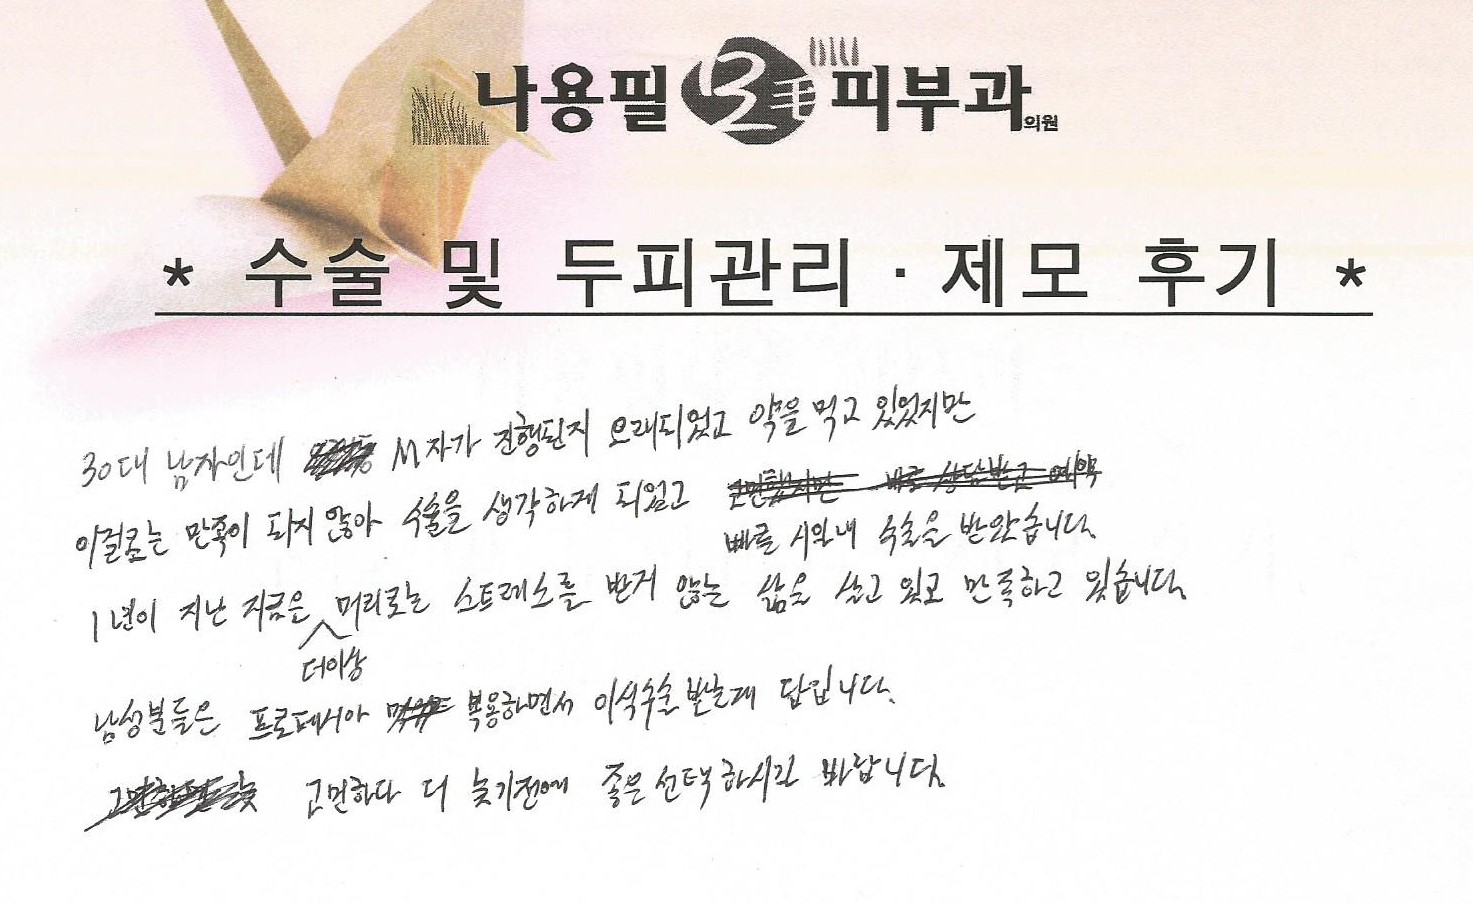 나용필 모毛 피부과의원
* 수술 및 두피관리 · 제모 후기 *
30대 남자인데 M자가 진행된지 오래되었고 약을 먹고 있었지만
이걸로는 만족이 되지 않아 수술을 생각하게 되었고 고민했지만 바로 상담받고 예약
빠른 시일내 수술을 받았습니다.
1년이 지난 지금은 머리로는 스트레스를 받지 않는 삶을 살고 있고 만족하고 있습니다.
더이상
남성분들은 프로페시아 복용하면서 이식수술 받는게 답입니다.
고민하다 더 늦기전에 좋은 선택하시길 바랍니다.